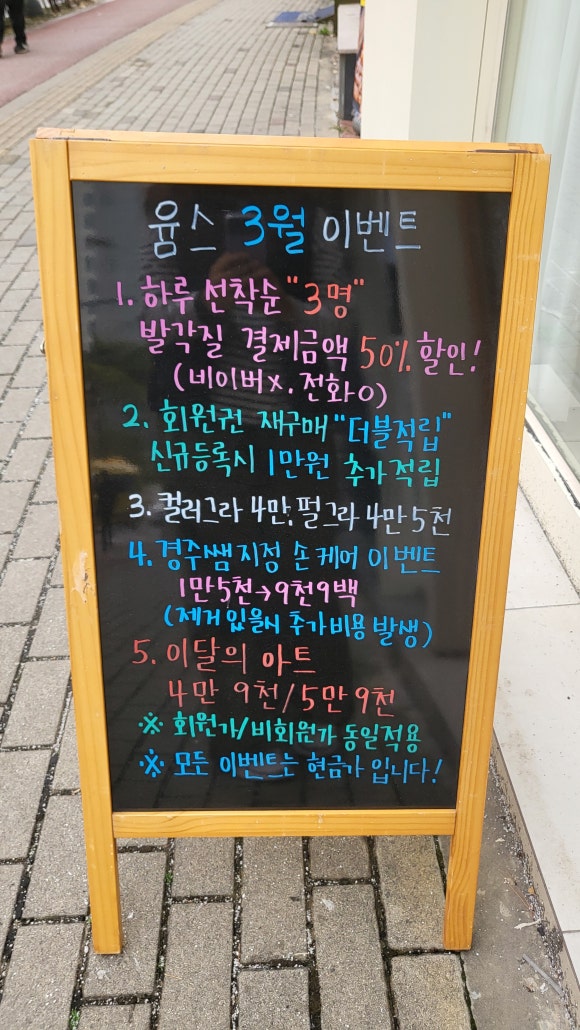 윰스 3월 이벤트
1. 하루 선착순 "3명"
발각질 결제금액 50% 할인!
(비이버X. 전화O)
2. 회원권 재구매 "더블적립"
신규등록시 1만원 추가적립
3. 컬러그라 4만. 펄그라 4만 5천
4. 경주쌤 지정 손케어 이벤트
1만 5천→9천9백
(제거 있을시 추가비용 발생)
5. 이달의 아트
4만 9천/5만 9천
※ 회원가/비회원가 동일적용
※ 모든 이벤트는 현금가 입니다!